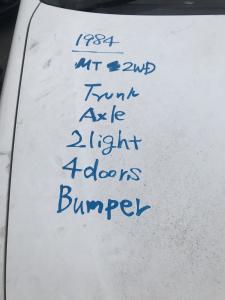 1984
MT 2WD
Trunk
Axle
2light
4doors
Bumper